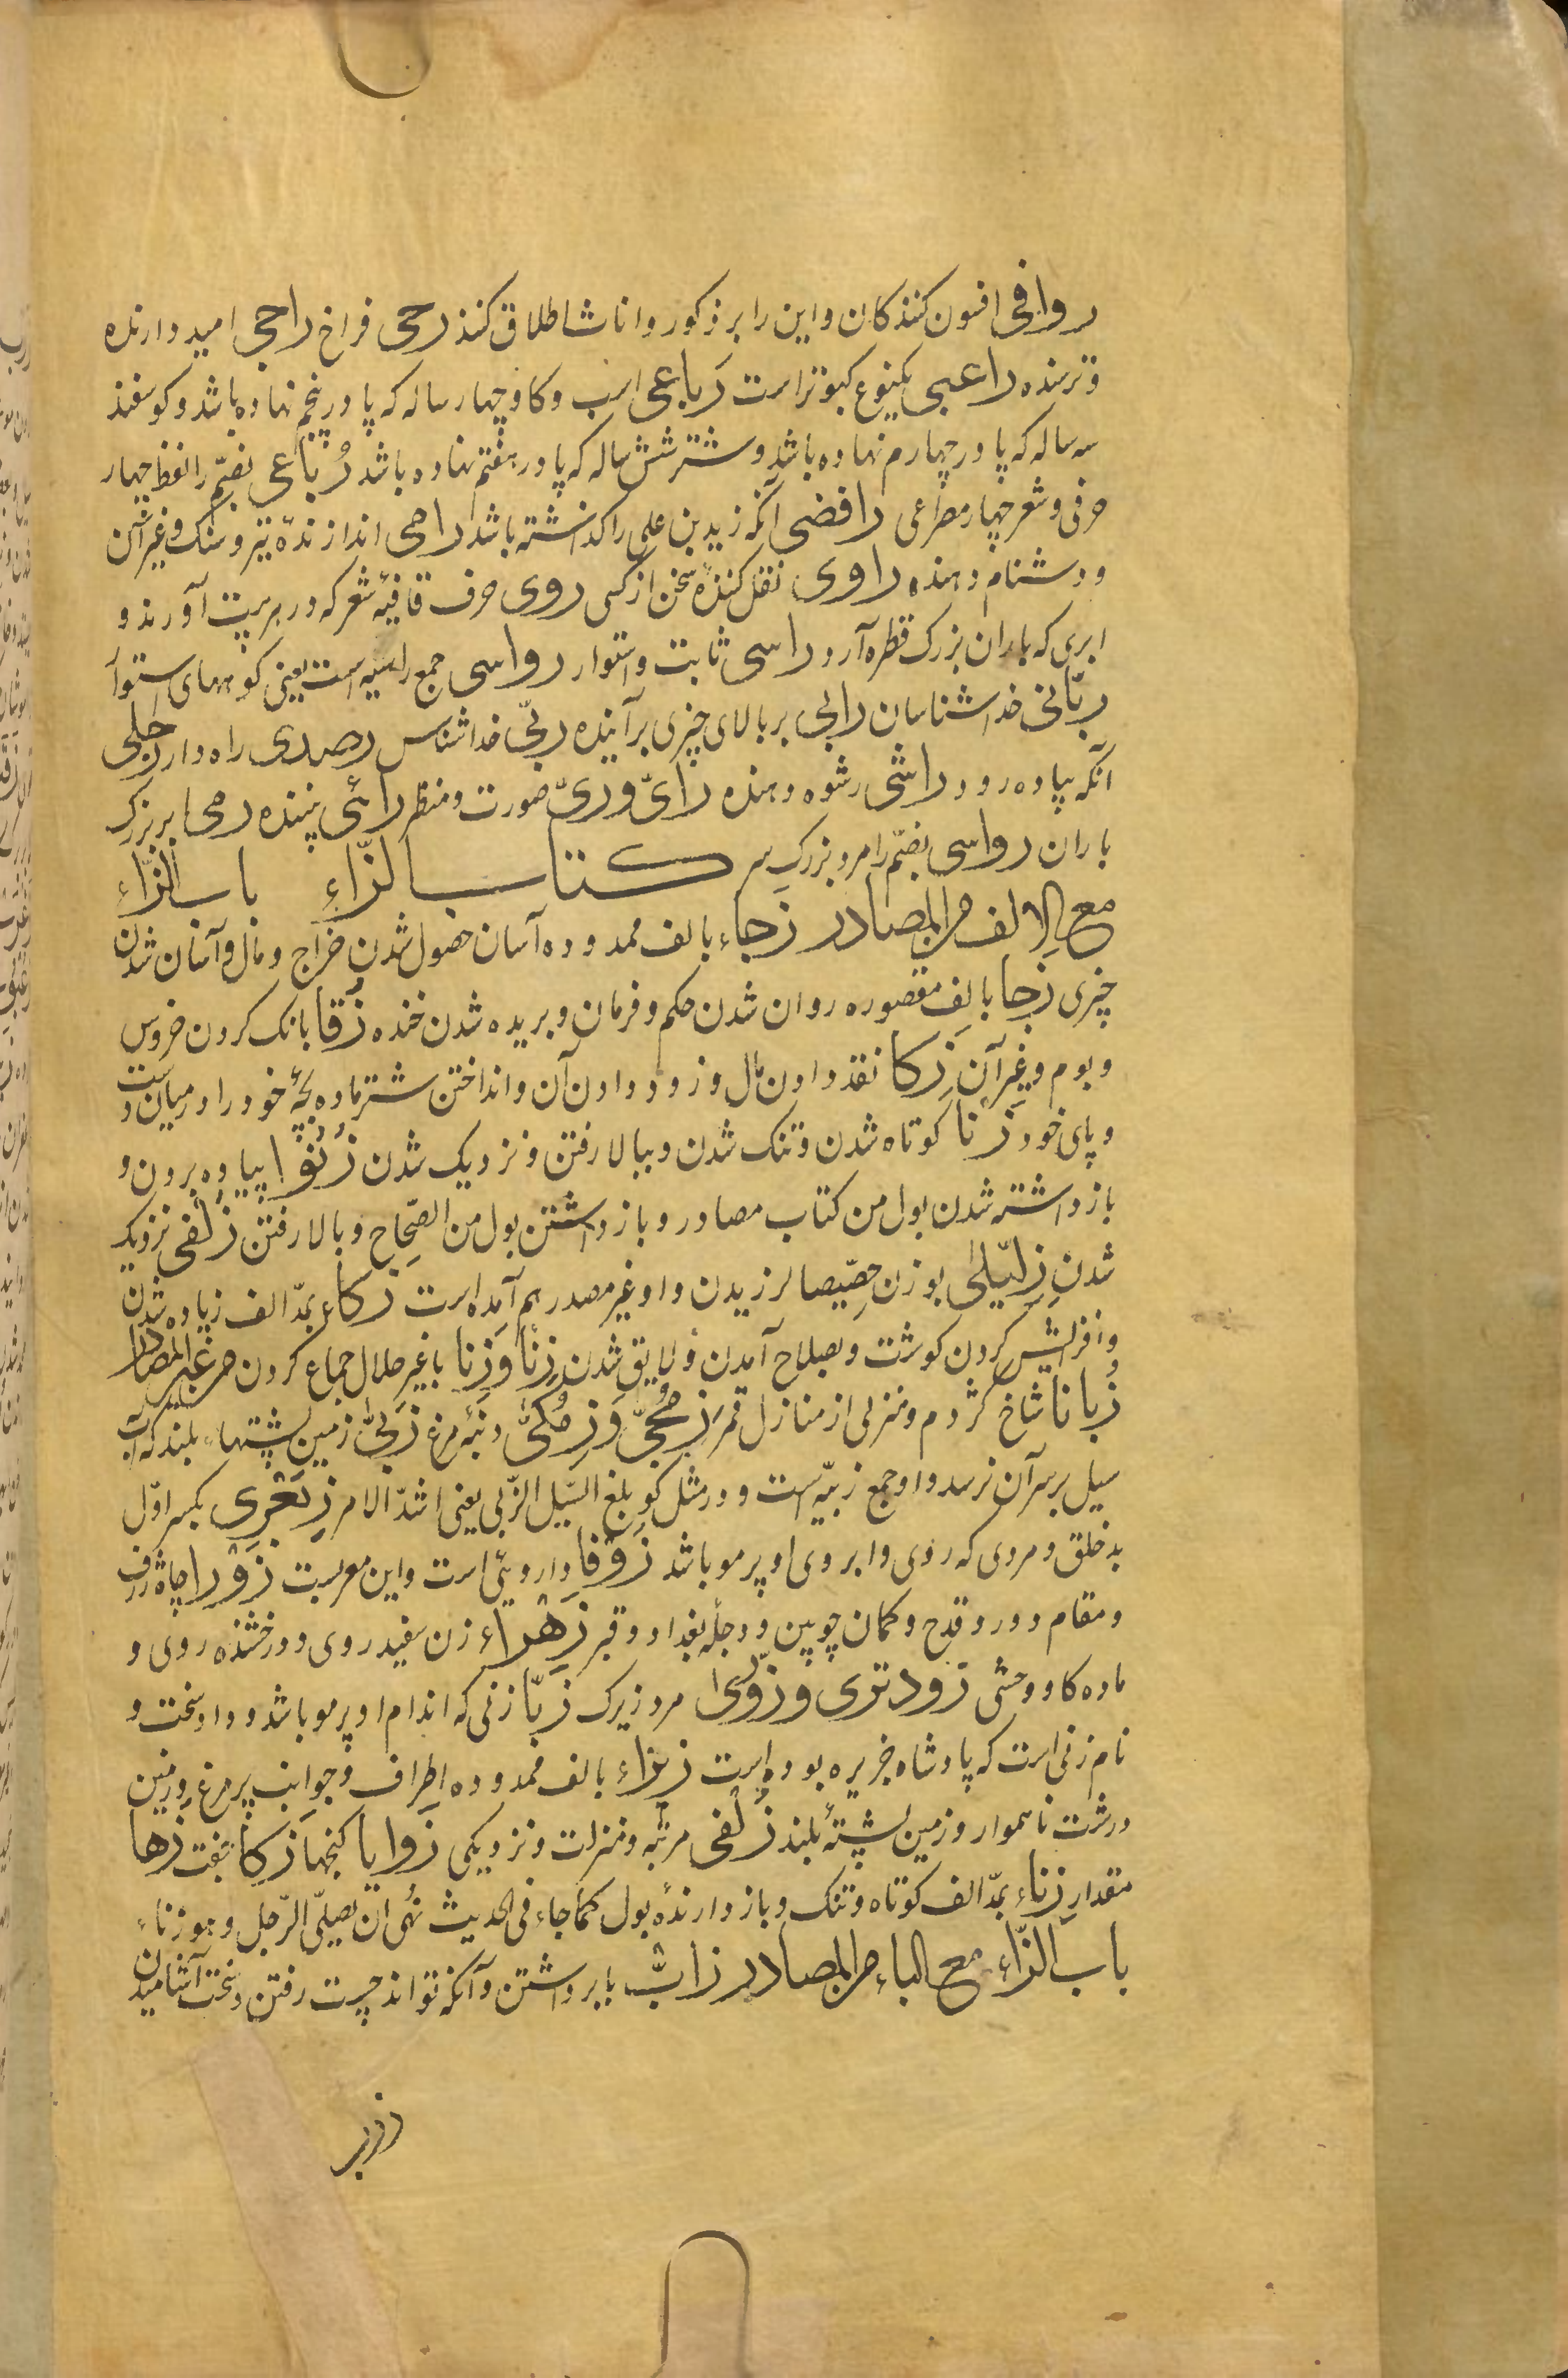 رواقی افسون کنندکان و این را بر ذکور و اناث اطلاق کنند رحی فراخ راجی امید دارنده
و ترسنده راعبی یکنوع کبوتر است رَباعی اسب و کاو چهار ساله که پا در پنجم نهاده باشد و کوسفند
سه ساله که پا در چهارم نهاده باشد و شتر شش ساله که پا در هفتم نهاده باشد رُباعی بضمّ را لفظ چهار
حرفی و شعر چهار مصراعی رافضی آنکه زید بن علی را کذاشته باشد رامی اندازندهٔ تیر و سنک و غیر آن
و دشنام دهنده راوی نقل کنندهٔ سخن از کسی روی حرف قافیهٔ شعر که در هر بیت آورند و
ابری که باران بزرک قطره آرد راسی ثابت و استوار رواسی جمع راسیه است یعنی کوههای استوار
ربّانی خداشناسان رابی بر بالای چیزی برآینده ربّی خداشناس رصدی راه‌دار رجلی
آنکه پیاده رود راشی رشوه دهنده رایّ و ریّ صورت و منظر رائی بیننده رمی ابر بزرک
باران رواسی بضمّ را مرد بزرک سر کتاب الزّاء باب الزّاء
مع الالف من المصادر زجاء بالف ممدوده آسان حصول شدن خراج و مال و آسان شدن
چیزی زجا بالف مقصوره روان شدن حکم و فرمان و بریده شدن خنده زُقا بانک کردن خروس
و بوم و غیر آن زَکا نقد دادن مال و زود دادن آن و انداختن شتر ماده بچهٔ خود را در میان دست
و پای خود زنا کوتاه شدن و تنک شدن و ببالا رفتن و نزدیک شدن زنوا پیاده بردن و
باز داشته شدن بول من کتاب مصادر و باز داشتن بول من الصّحاح و بالا رفتن زُلفی نزدیک
شدن زِلّیلی بوزن حصّیصا لرزیدن و او غیر مصدر هم آمده است زکاء بمدّ الف زیاده شدن
و افزایش کردن کوشت و بصلاح آمدن و لایق شدن زِنا و زَنا با غیر حلال جماع کردن من غیر المصادر
زُبانا شاخ کژدم و منزلی از منازل قمر زمجّی و زِمکّی دنبهٔ مرغ زبیٰ زمین پشتها بلند که آب
سیل بر سر آن نرسد و او جمع زبیه است و در مثل کو بلغ السّیل الزّبی یعنی اشدّ الامر زبعری بکسر اوّل
بدخلق و مردی که روی و ابروی او پر مو باشد زوفا داروئی است و این معربست زورا چاه ژرف
و مقام دور و قدح و کمان چوبین و دجلهٔ بغداد و قبر زَهْراء زن سفید روی و درخشنده روی و
ماده کاو وحشی زودتری و زوّی مرد زیرک زبّا زنی که اندام او پر مو باشد و داو سخت و
نام زنی است که پادشاه جزیره بوده است زیزاء بالف ممدوده اطراف و جوانب پر مرغ و زمین
درشت ناهموار و زمین پشتهٔ بلند زُلفی مرتبه و منزلت و نزدیکی زَوایا کنجها زَکا جفت زُها
مقدار زناء بمدّ الف کوتاه و تنک و باز دارندهٔ بول کما جاء فی الحدیث نُهی ان یصلّی الرّجل و هو زناء
باب الزّاء مع الباء من المصادر زابّ بار برداشتن و آنکه تواند چست رفتن و سخت آشامیدن